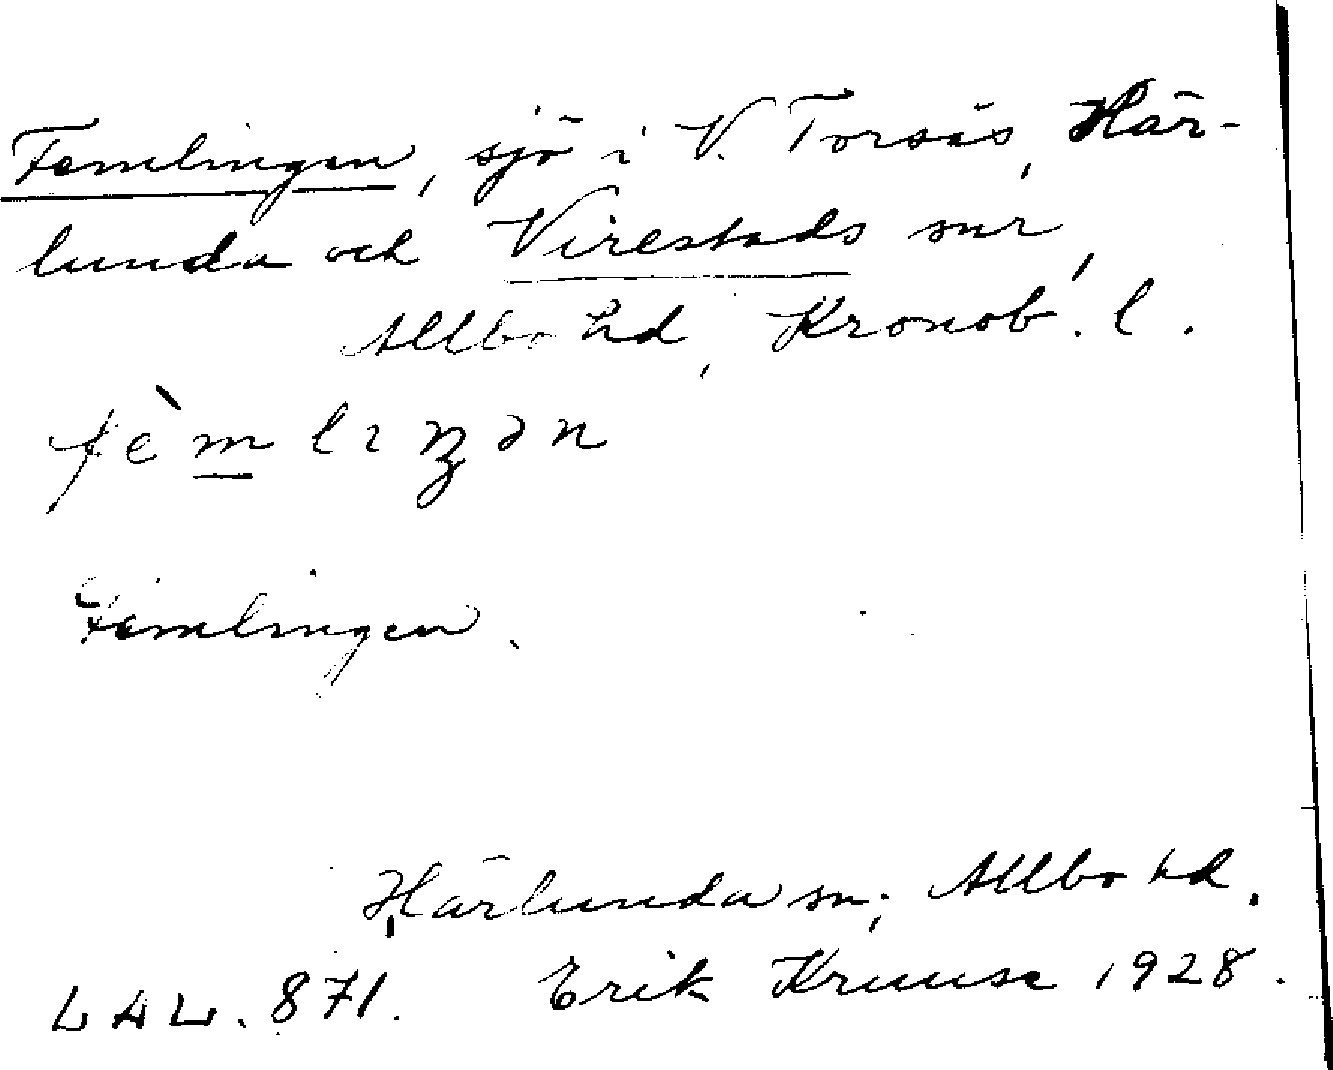 Femlingen, sjö i V. Torsås, Här-
lunda och Virestads snr,
Allbo hd, Kronob. l.
fèmlıŋən
Femlingen.
Härlunda sn, Allbo hd.
LAL. 871. Erik Kruuse 1928.